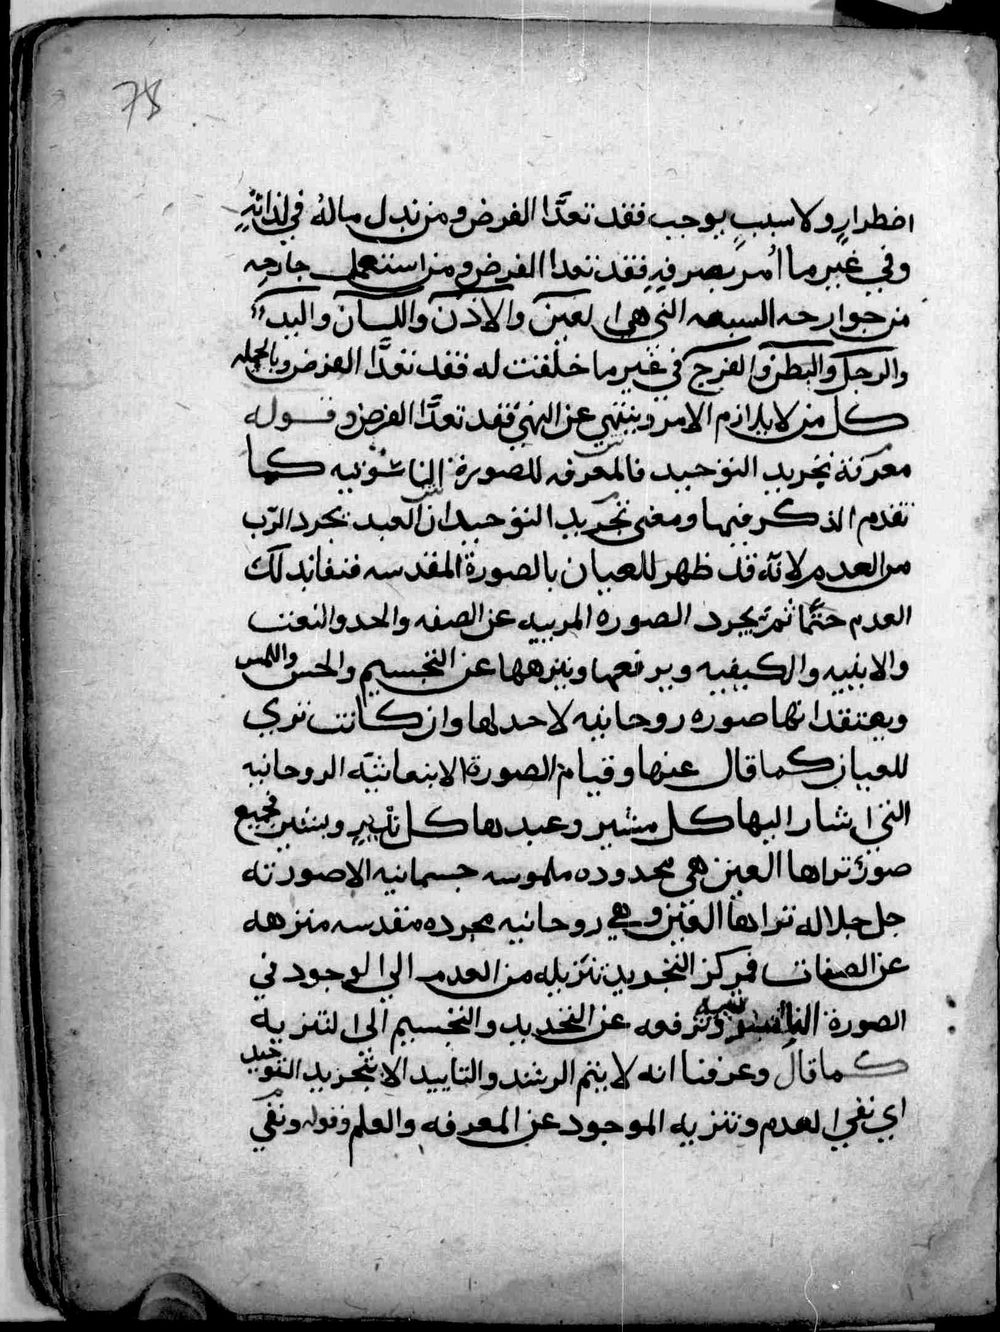 78
اضطرارٍ ولا سببٍ يوجب فقد تعدَّا الفرض ومن بدل مالهُ في لذاته
وفي غير ما اُمر بصرفهِ فقد تعدا الفرض ومن استعمل جارحه
من جوارحه السبعه التي هي العين والاذن واللسان واليد
والرجل والبطن والفرج في غير ما خلقت له فقد تعدَّا الفرض وبالجمله
كل من لا يلازم الامر وينتهي عن النهي فقد تعدَّا الفرض وقوله
معرفة تجريد التوحيد فالمعرفه للصورة الناسوتيه كما
تقدم الذكر فيها ومعنى تجريد التوحيد ان العبد يجرد الرب
من العدم لانه قد ظهر للعيان بالصورة المقدسه فنفا بذلك
العدم حتمًا ثم يجرد الصوره المرييه عن الصفه والحد والنعت
والاينيه والكيفيه ويرفعها وينزهها عن التجسيم والحس واللمس
ويعتقد انها صوره روحانيه لا حد لها وان كانت ترى
للعيان كما قال عنها وقيام الصورة الانبعاثيَّه الروحانيه
التي اشار اليها كل مشير وعبدها كل نذير وبشير فجميع
صورة تراها العين هي محدوده ملموسه جسمانيه الا صورته
جل جلاله تراها العين وهي روحانيه مجرده مقدسه منزهه
عن الصفات فمركز التجريد تنزيله من العدم الى الوجود في
الصورة وترفعه عن التحديد والتجسيم الى التنزيه
كما قال وعرفنا انه لا يتم الرشد والتاييد الا بتجريد التوحيد
اي نفي العدم وتنزيه الموجود عن المعرفه والعلم وقوله ونفي